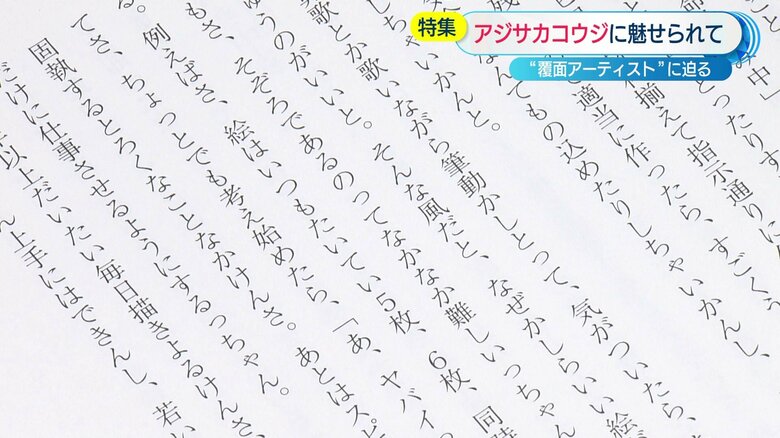 特集
アジサカコウジに魅せられて
“覆面アーティスト”に迫る
み中」
とったりす
揃えて指示通りに
適当に作ったら、すごくう
てもの込めたりしちゃいかんし、
しちゃいかんと。
歌とか歌いながら筆動かしとって、気がついたら、
ゅうのがいいと。そんな風だと、なぜかしらいい絵
もさ、そぞろであるのってなかなか難しいっちゃん
る。例えばさ、絵はいつもたいてい5枚、6枚、同
てさ、ちょっとでも考え始めたら、「あ、ヤバイ
固執するとろくなことなかけんさ。あとはスピ
だけに仕事させるようにするっちゃん。
以上だいたい毎日描きよるけんさ、
ん上手にはできんし、若い